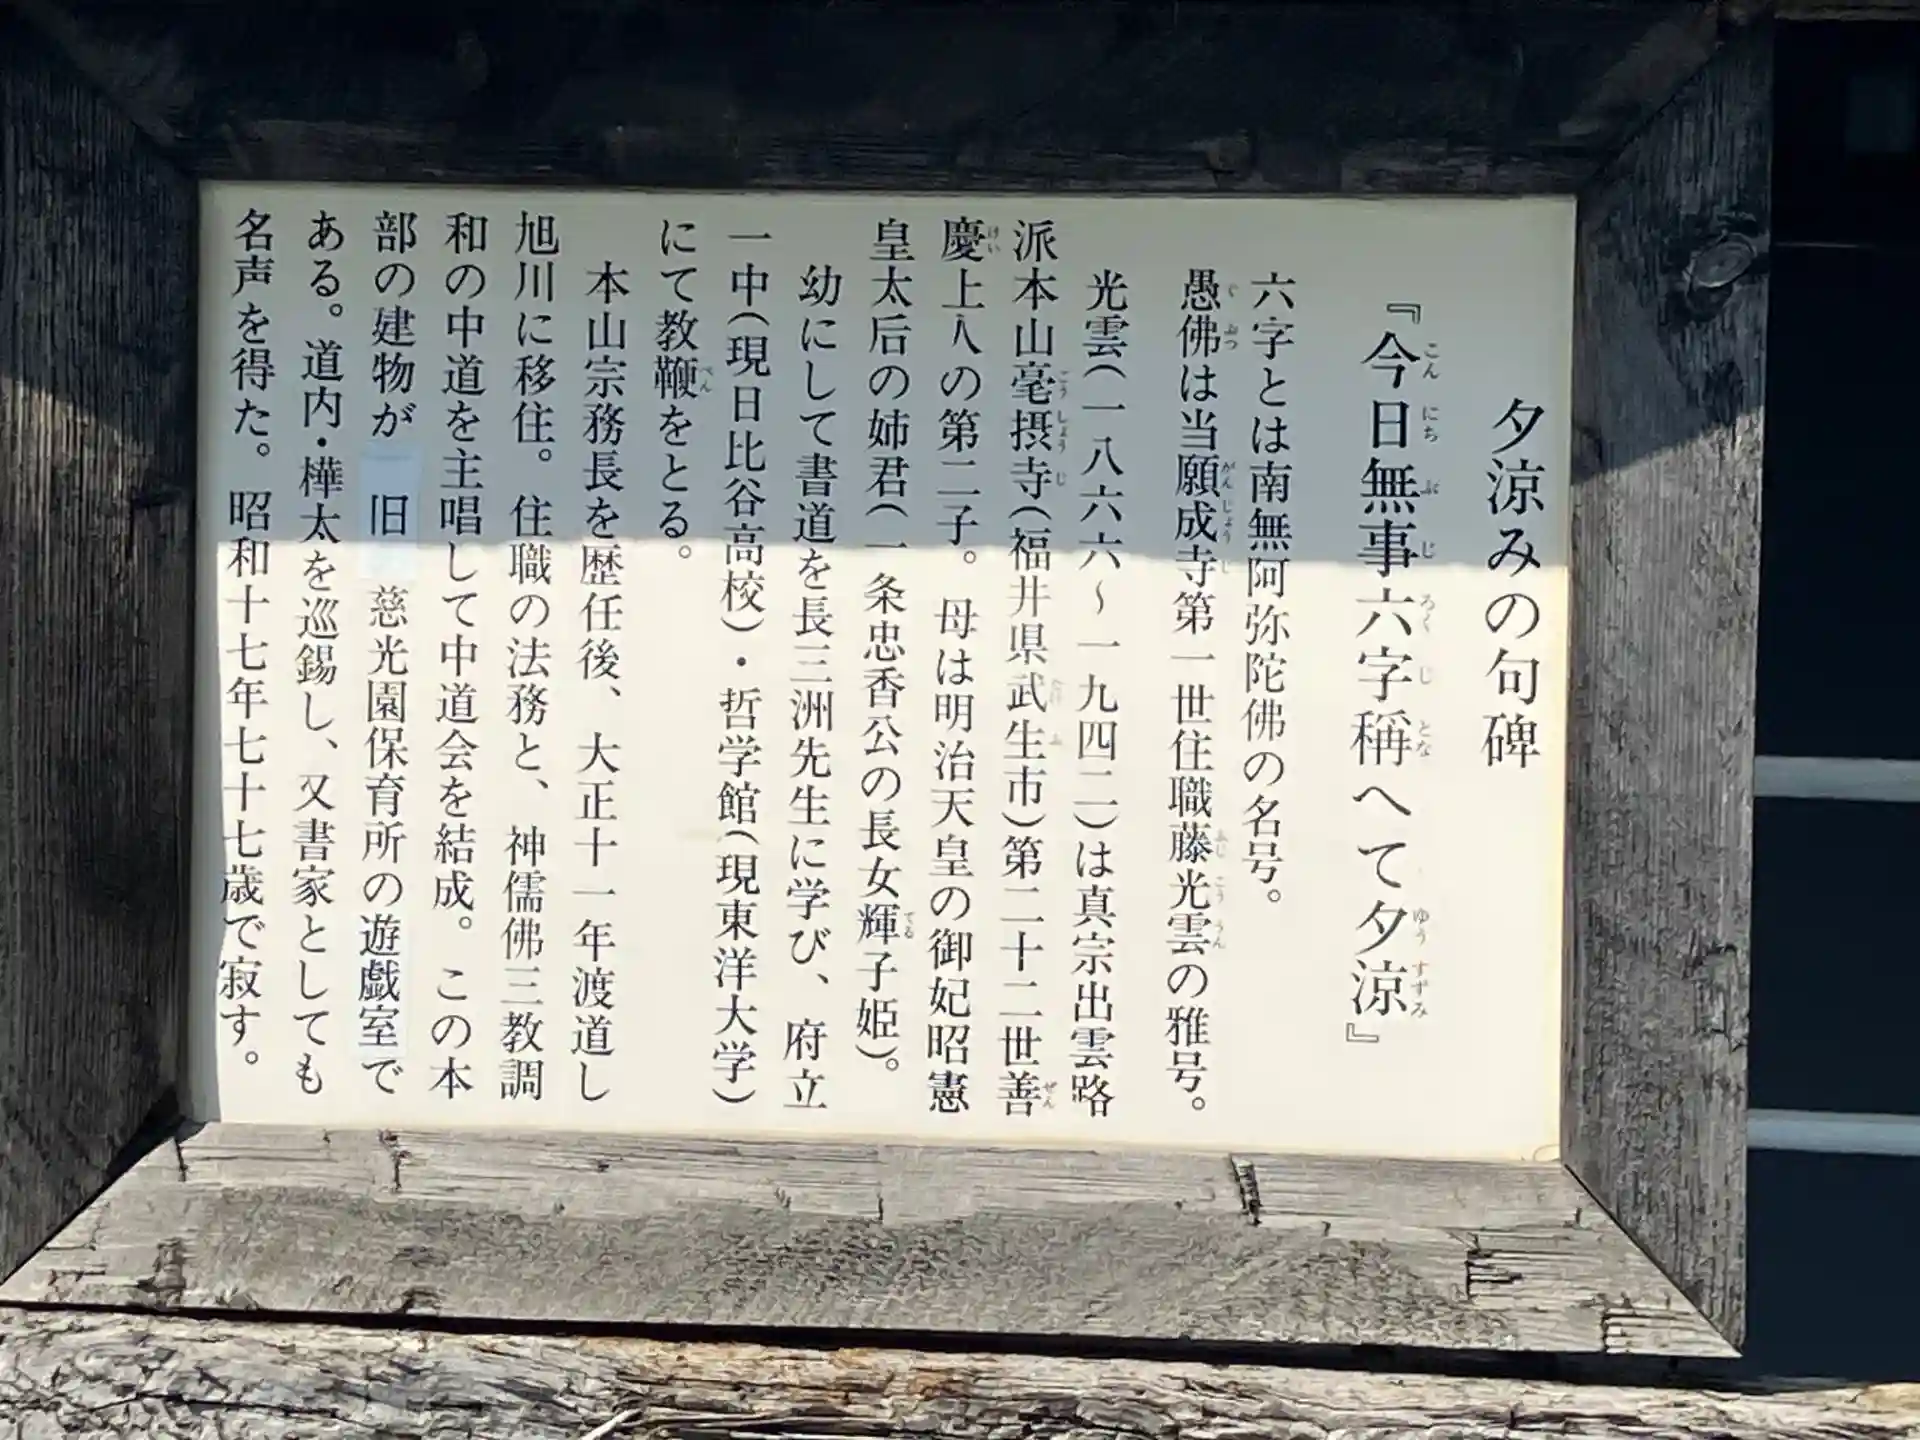 夕涼みの句碑
『今日無事六字稱へて夕涼』
六字とは南無阿弥陀佛の名号。
愚佛は当願成寺第一世住職藤光雲の雅号。
光雲(一八六六～一九四二)は真宗出雲路
派本山毫摂寺(福井県武生市)第二十二世善
慶上人の第二子。母は明治天皇の御妃昭憲
皇太后の姉君(一条忠香公の長女輝子姫)。
幼にして書道を長三洲先生に学び、府立
一中(現日比谷高校)・哲学館(現東洋大学)
にて教鞭をとる。
本山宗務長を歴任後、大正十一年渡道し
旭川に移住。住職の法務と、神儒佛三教調
和の中道を主唱して中道会を結成。この本
部の建物が旧慈光園保育所の遊戯室で
ある。道内・樺太を巡錫し、又書家としても
名声を得た。昭和十七年七十七歳で寂す。